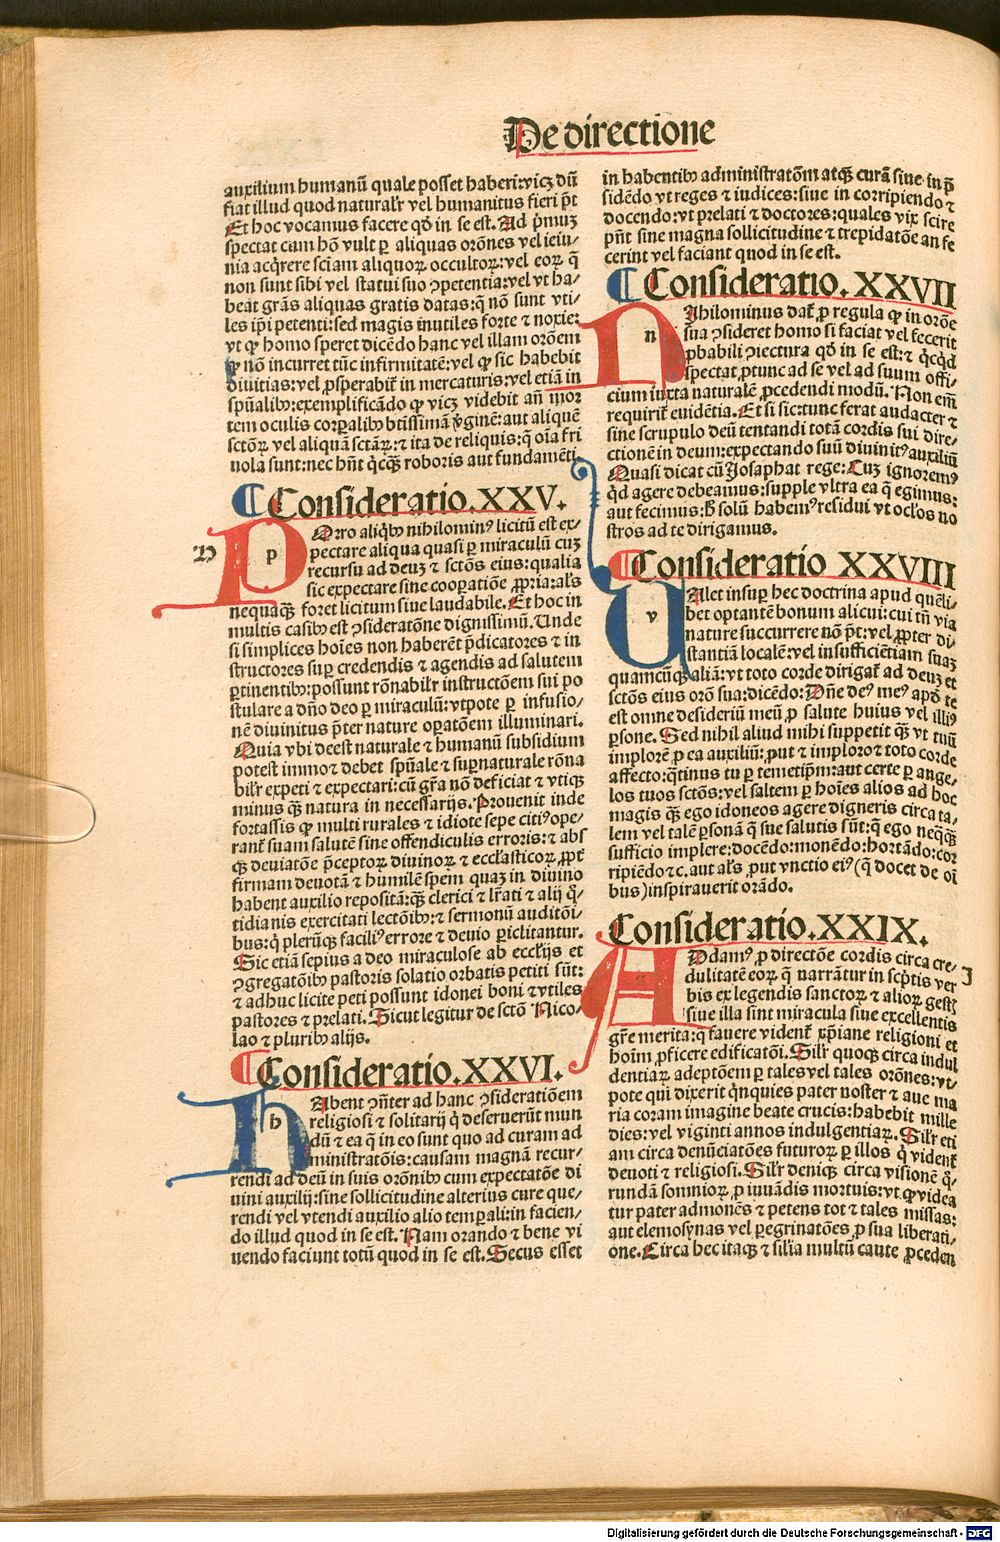 De directione
auxilium humanū quale posset haberi: vicʒ dū
fiat illud quod naturalr̄ vel humanitus fieri pn̄t
Et hoc vocamus facere qd̄ in se est. Ad pmuʒ
spectat cum hō vult ꝑ aliquas orōnes vel ieiu-
nia acq̄rere sciam aliquoꝝ occultoꝝ: vel eoꝝ q̄
non sunt sibi vel statui suo ꝯpetentia: vel vt ha-
beat grās aliquas gratis datas: q̄ nō sunt vti-
les ipi petenti: sed magis inutiles forte ⁊ noxie:
vt ꝙ homo speret dicēdo hanc vel illam orōem
ꝙ nō incurret tūc infirmitatē: vel ꝙ sic habebit
diuitias: vel ꝓsperabit̄ in mercaturis: vel etiā in
spūalibꝰ: exemplificādo ꝙ vicʒ videbit an̄ mor
tem oculis corꝑalibꝰ btissimā v̄ginē: aut aliquē
sctōꝝ vel aliquā sctāꝝ: ⁊ ita de reliquis: q̄ oīa fri
uola sunt: nec hn̄t q̄cqꝫ roboris aut fundamēti
¶ Consideratio. XXV.
p POrro aliqbꝰ nihilominꝰ licitū est ex-
pectare aliqua quasi ꝑ miraculū cuʒ
recursu ad deuʒ ⁊ sctōs eius: qualia
sic expectare sine cooꝑatiōe ꝓpria: als̄
nequaqꝫ foret licitum siue laudabile. Et hoc in
multis casibꝰ est ꝯsideratōne dignissimū. Unde
si simplices hoīes non haberēt p̄dicatores ⁊ in
structores suꝑ credendis ⁊ agendis ad salutem
ꝑtinentibꝰ: possunt rōnabilr̄ instructōem sui po
stulare a dn̄o deo ꝑ miraculū: vtpote ꝑ infusio-
nē diuinitus p̄ter nature oꝑatōem illuminari.
Quia vbi deest naturale ⁊ humanū subsidium
potest immo ⁊ debet spūale ⁊ suꝑnaturale rōna
bilr̄ expeti ⁊ expectari: cū grā nō deficiat ⁊ vtiqꝫ
minus qꝫ natura in necessarijs. Prouenit inde
fortassis ꝙ multi rurales ⁊ idiote sepe citiꝰ ope-
rant̄ suam salutē sine offendiculis erroris: ⁊ absꝫ
qꝫ deuiatōe p̄ceptoꝝ diuinoꝝ ⁊ ecclasticoꝝ, ꝓpt̄
firmam deuotā ⁊ humilē spem quaʒ in diuino
habent auxilio repositā: qꝫ clerici ⁊ lr̄ati ⁊ alij q̄-
tidianis exercitati lectōibꝰ: ⁊ sermonū auditōi-
bus: q̄ plerūqꝫ faciliꝰ errore ⁊ deuio ꝑiclitantur.
Sic etiā sepius a deo miraculose ab ecclijs et
ꝯgregatōibꝰ pastoris solatio orbatis petiti sūt:
⁊ adhuc licite peti possunt idonei boni ⁊ vtiles
pastores ⁊ prelati. Sicut legitur de sctō Nico-
lao ⁊ pluribꝰ alijs.
¶ Consideratio. XXVI.
h HAbent ꝯn̄ter ad hanc ꝯsideratiōem
religiosi ⁊ solitarij q̄ deseruerūt mun
dū ⁊ ea q̄ in eo sunt quo ad curam ad
ministratōis: causam magnā recur-
rendi ad deū in suis orōnibꝰ cum expectatōe di
uini auxilij: sine sollicitudine alterius cure que-
rendi vel vtendi auxilio alio temꝑali: in facien-
do illud quod in se est. Nam orando ⁊ bene vi
uendo faciunt totū quod in se est. Secus esset
in habentibꝰ administratōm atqꝫ curā siue in p̄
sidēdo vt reges ⁊ iudices: siue in corripiendo ⁊
docendo: vt prelati ⁊ doctores: quales vix scire
pn̄t sine magna sollicitudine ⁊ trepidatōe an fe
cerint vel faciant quod in se est.
¶ Consideratio. XXVII
n NIhilominus dat̄ ꝓ regula ꝙ in orōe
sua ꝯsideret homo si faciat vel fecerit
ꝓbabili ꝯiectura qd̄ in se est: ⁊ q̄cqd̄
spectat ꝓtunc ad se vel ad suum offi-
cium iuxta naturalē ꝓcedendi modū. Non em̄
requirit̄ euidētia. Et si sic: tunc ferat audacter ⁊
sine scrupulo deū tentandi totā cordis sui dire-
ctionē in deum: expectando suū diuinitꝰ auxiliū
Quasi dicat cū Josaphat rege: Cuʒ ignoremꝰ
qd̄ agere debeamus: supple vltra ea q̄ egimus:
aut fecimus: h̄ solū habemꝰ residui vt oclos no
stros ad te dirigamus.
¶ Consideratio XXVIII
v VAlet insuꝑ hec doctrina apud quēli-
bet optantē bonum alicui: cui tn̄ via
nature succurrere nō pt̄: vel ꝓpter di
stantiā localē: vel insufficiētiam suaʒ
quamcūqꝫ aliā: vt toto corde dirigat̄ ad deuʒ et
sctōs eius orō sua: dicēdo: Dn̄e deꝰ meꝰ apd̄ te
est omne desideriū meū ꝓ salute huius vel illiꝰ
ꝑsone. Sed nihil aliud mihi suppetit qꝫ vt tuū
implorē ꝓ ea auxiliū: ꝓut ⁊ imploro ⁊ toto corde
affecto: q̄tinus tu ꝑ temetipm̄: aut certe ꝑ ange-
los tuos sctōs: vel saltem ꝑ hoīes alios ad hoc
magis qꝫ ego idoneos agere digneris circa ta-
lem vel talē ꝑsonā q̄ sue salutis sūt: q̄ ego neqꝫqꝫ
sufficio implere: docēdo: monēdo: hortādo: cor
ripiēdo ⁊c. aut als̄ ꝓut vnctio eiꝰ (q̄ docet de oī
bus) inspirauerit orādo.
Consideratio. XXIX.
ADdamꝰ ꝓ directōe cordis circa cre-
dulitatē eoꝝ q̄ narrātur in scp̄tis ver
bis ex legendis sanctoꝝ ⁊ alioꝝ gest̄
siue illa sint miracula siue excellentis
gr̄e merita: q̄ fauere vident̄ xp̄iane religioni et
hoim̄ ꝓficere edificatōi. Silr̄ quoqꝫ circa indul
dentiaꝝ adeptōem ꝑ tales vel tales orōnes: vt-
pote qui dixerit q̄nquies pater noster ⁊ aue ma
ria coram imagine beate crucis: habebit mille
dies: vel viginti annos indulgentiaꝝ. Silr̄ eti
am circa denūciatōes futuroꝝ ꝑ illos q̄ vident̄
deuoti ⁊ religiosi. Silr̄ deniqꝫ circa visionē q̄-
rundā somnioꝝ ꝓ iuuādis mortuis: vt ꝙ videa
tur pater admonēs ⁊ petens tot ⁊ tales missas:
aut elemosynas vel ꝑegrinatōes ꝓ sua liberati-
one. Circa hec itaqꝫ ⁊ silia multū caute ꝓceden
Digitalisierung gefördert durch die Deutsche Forschungsgemeinschaft - DFG